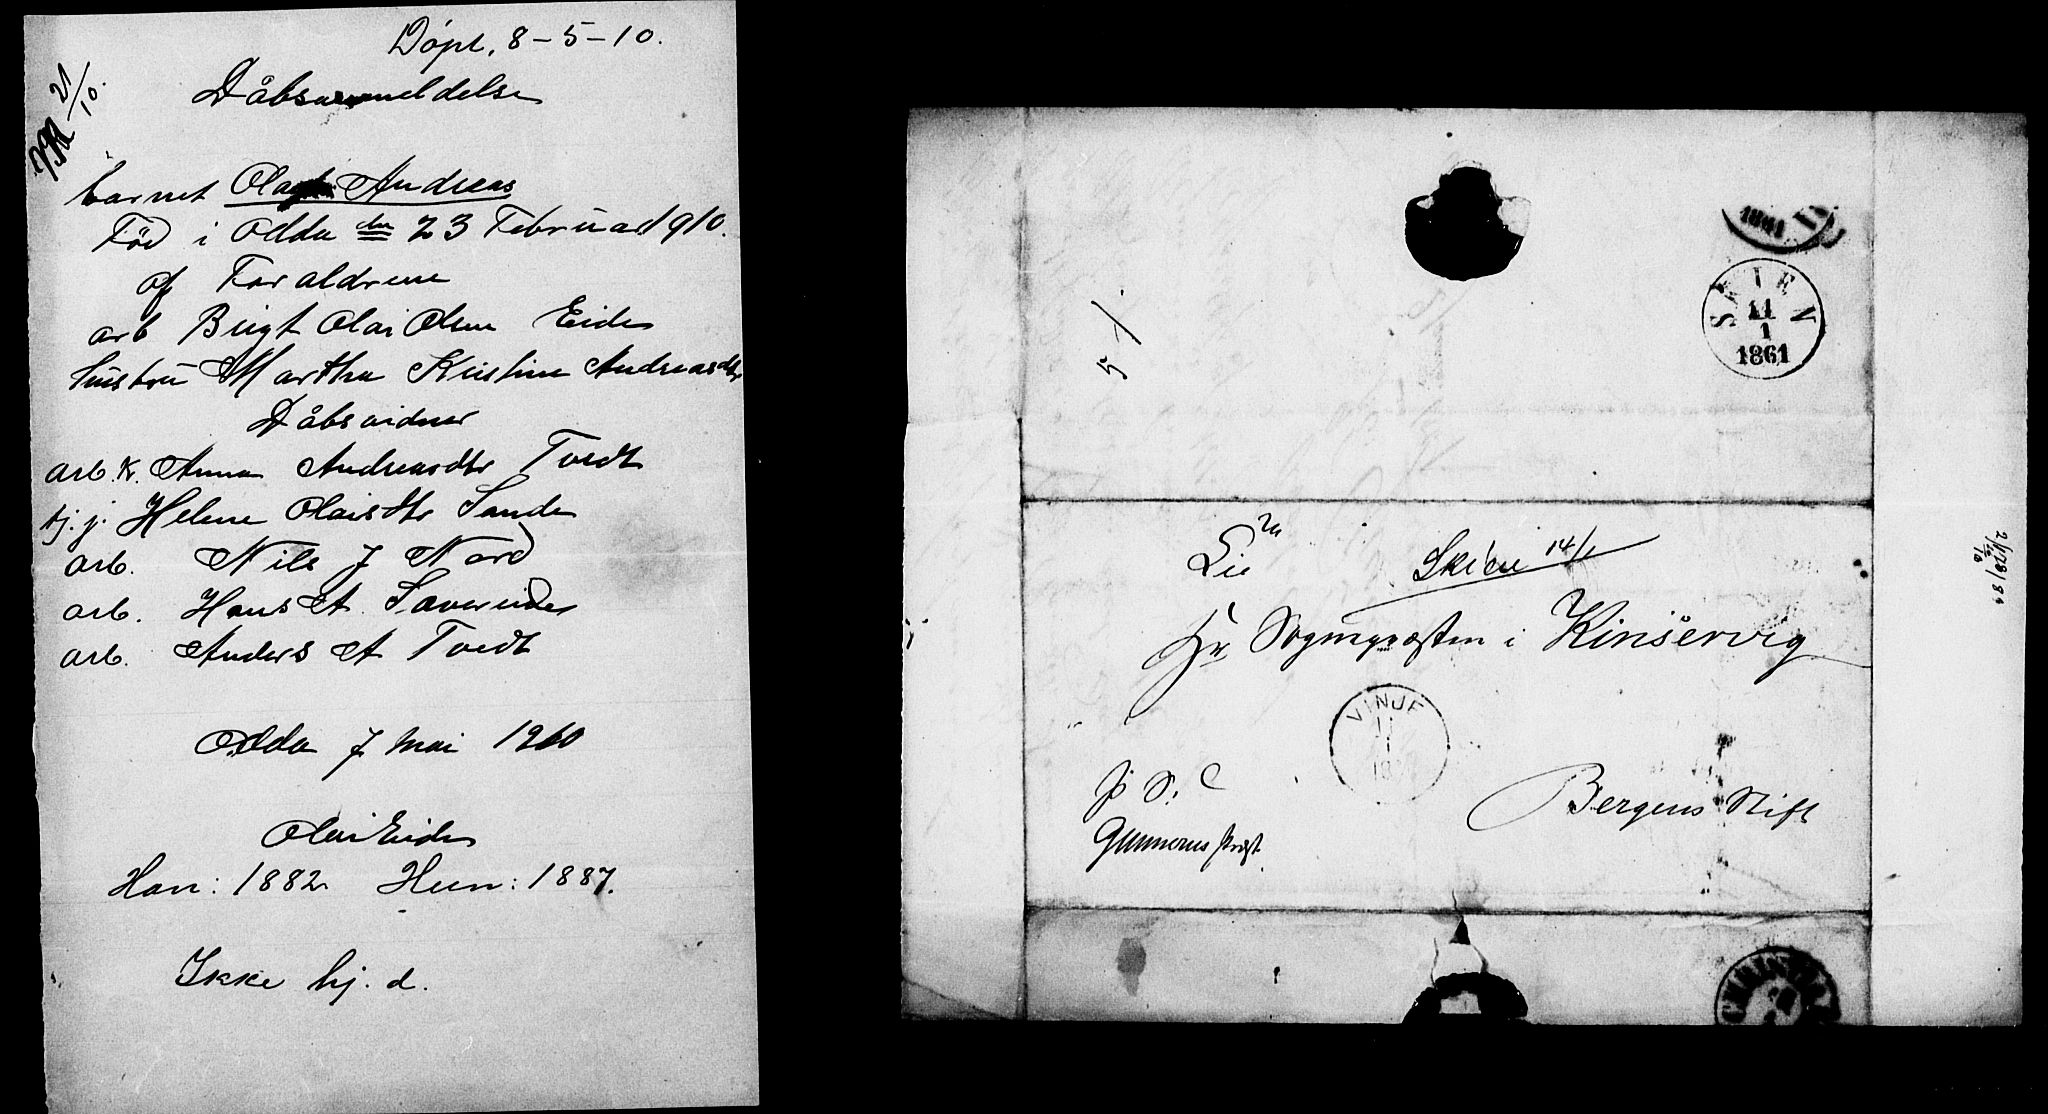 Døpt. 8-5-10.
21/10.
Dåbsanmeldelse
barnet Olaf Andreas
Fød i Odda den 23 Februar 1910.
af Foraldrene
arb Brigt Olai Olsen Eide
hustru Martha Kristine Andreasdtr
Dåbsvidner
arb. k. Anna Andreasdtr Tvedt
tj. j. Helene Olaisdtr Sande
arb. Nils J Nord
arb. Hans A.
arb. Anders A Tvedt
Odda 7 Mai 1910
Olai Eide
Han: 1882 Hun: 1887.
Ikke hj. d.
1861
SKIEN
11
1
1861
5/
Skien 14/1
Hr Sognepræsten i Kinservig
VINJE
11
1
Bergens Stift
P. S.
CHRISTIANIA